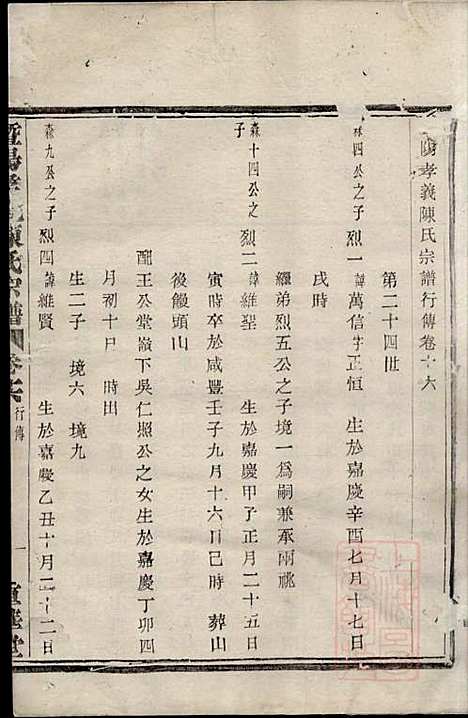 陽孝義陳氏宗譜行傳卷十六
第二十四世
森四公之子 烈一 諱萬信字正恒 生於嘉慶辛酉七月十七日
戌時
繼弟烈五公之子境一爲嗣兼承兩祧
森十四公之子 烈二 諱維聖 生於嘉慶甲子正月二十五日
寅時卒於咸豐壬子九月十六日巳時 葬山
後饅頭山
配王公堂嶺下吳仁照公之女生於嘉慶丁卯四
月初十日 時出
生二子 境六 境九
森九公之子 烈四 諱維賢 生於嘉慶乙丑十月二十二日
暨陽孝義陳氏宗譜 卷十六 行傳 一